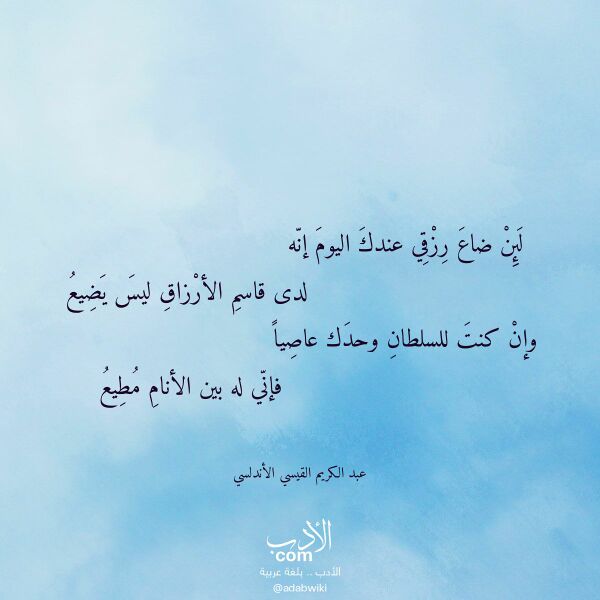 لَئِنْ ضاعَ رِزْقِي عندكَ اليومَ إنّه
لدى قاسمِ الأرْزاقِ ليسَ يَضِيعُ
وإنْ كنتَ للسلطانِ وحدَك عاصِياً
فإنّي له بين الأنامِ مُطِيعُ
عبد الكريم القيسي الأندلسي
الأدب
com
الأدب .. بلغة عربية
@adabwiki